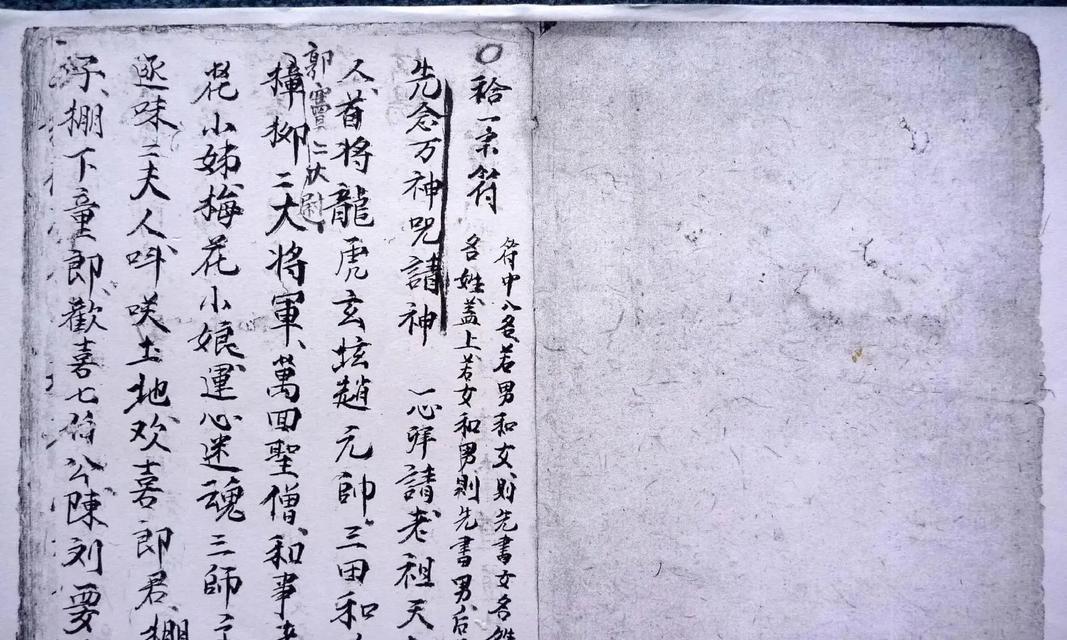 袷一宗符
符中八各若男和女則先書女各姓
各姓盖上若女和男則先書男后
先念万神咒請神 一心拜請老祖天
人首将龍虎玄坛趙元帥三田和
郭 二伏尉
樟柳二大将軍萬回聖僧和事
花小姊梅花小娘運心迷魂三師
逐味二夫人呌咲土地欢喜郎君棚
子棚下童郎歡喜七 公陳刘要